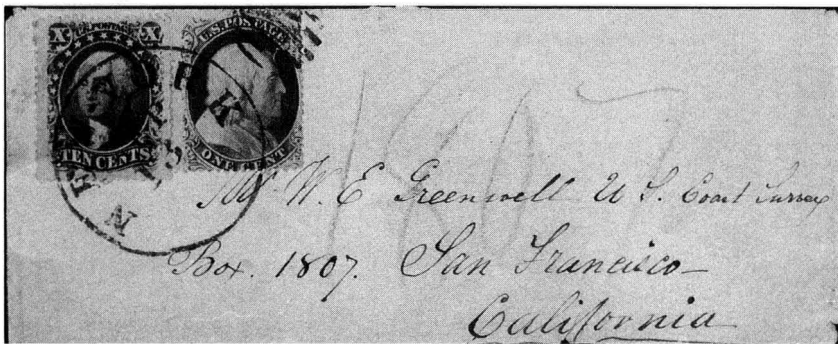 X U.S. POSTAGE X
TEN CENTS
U.S. POSTAGE
ONE CENT
1807
Mr W. E Greenwell U S. Coast Survey
Box. 1807. San Francisco
California